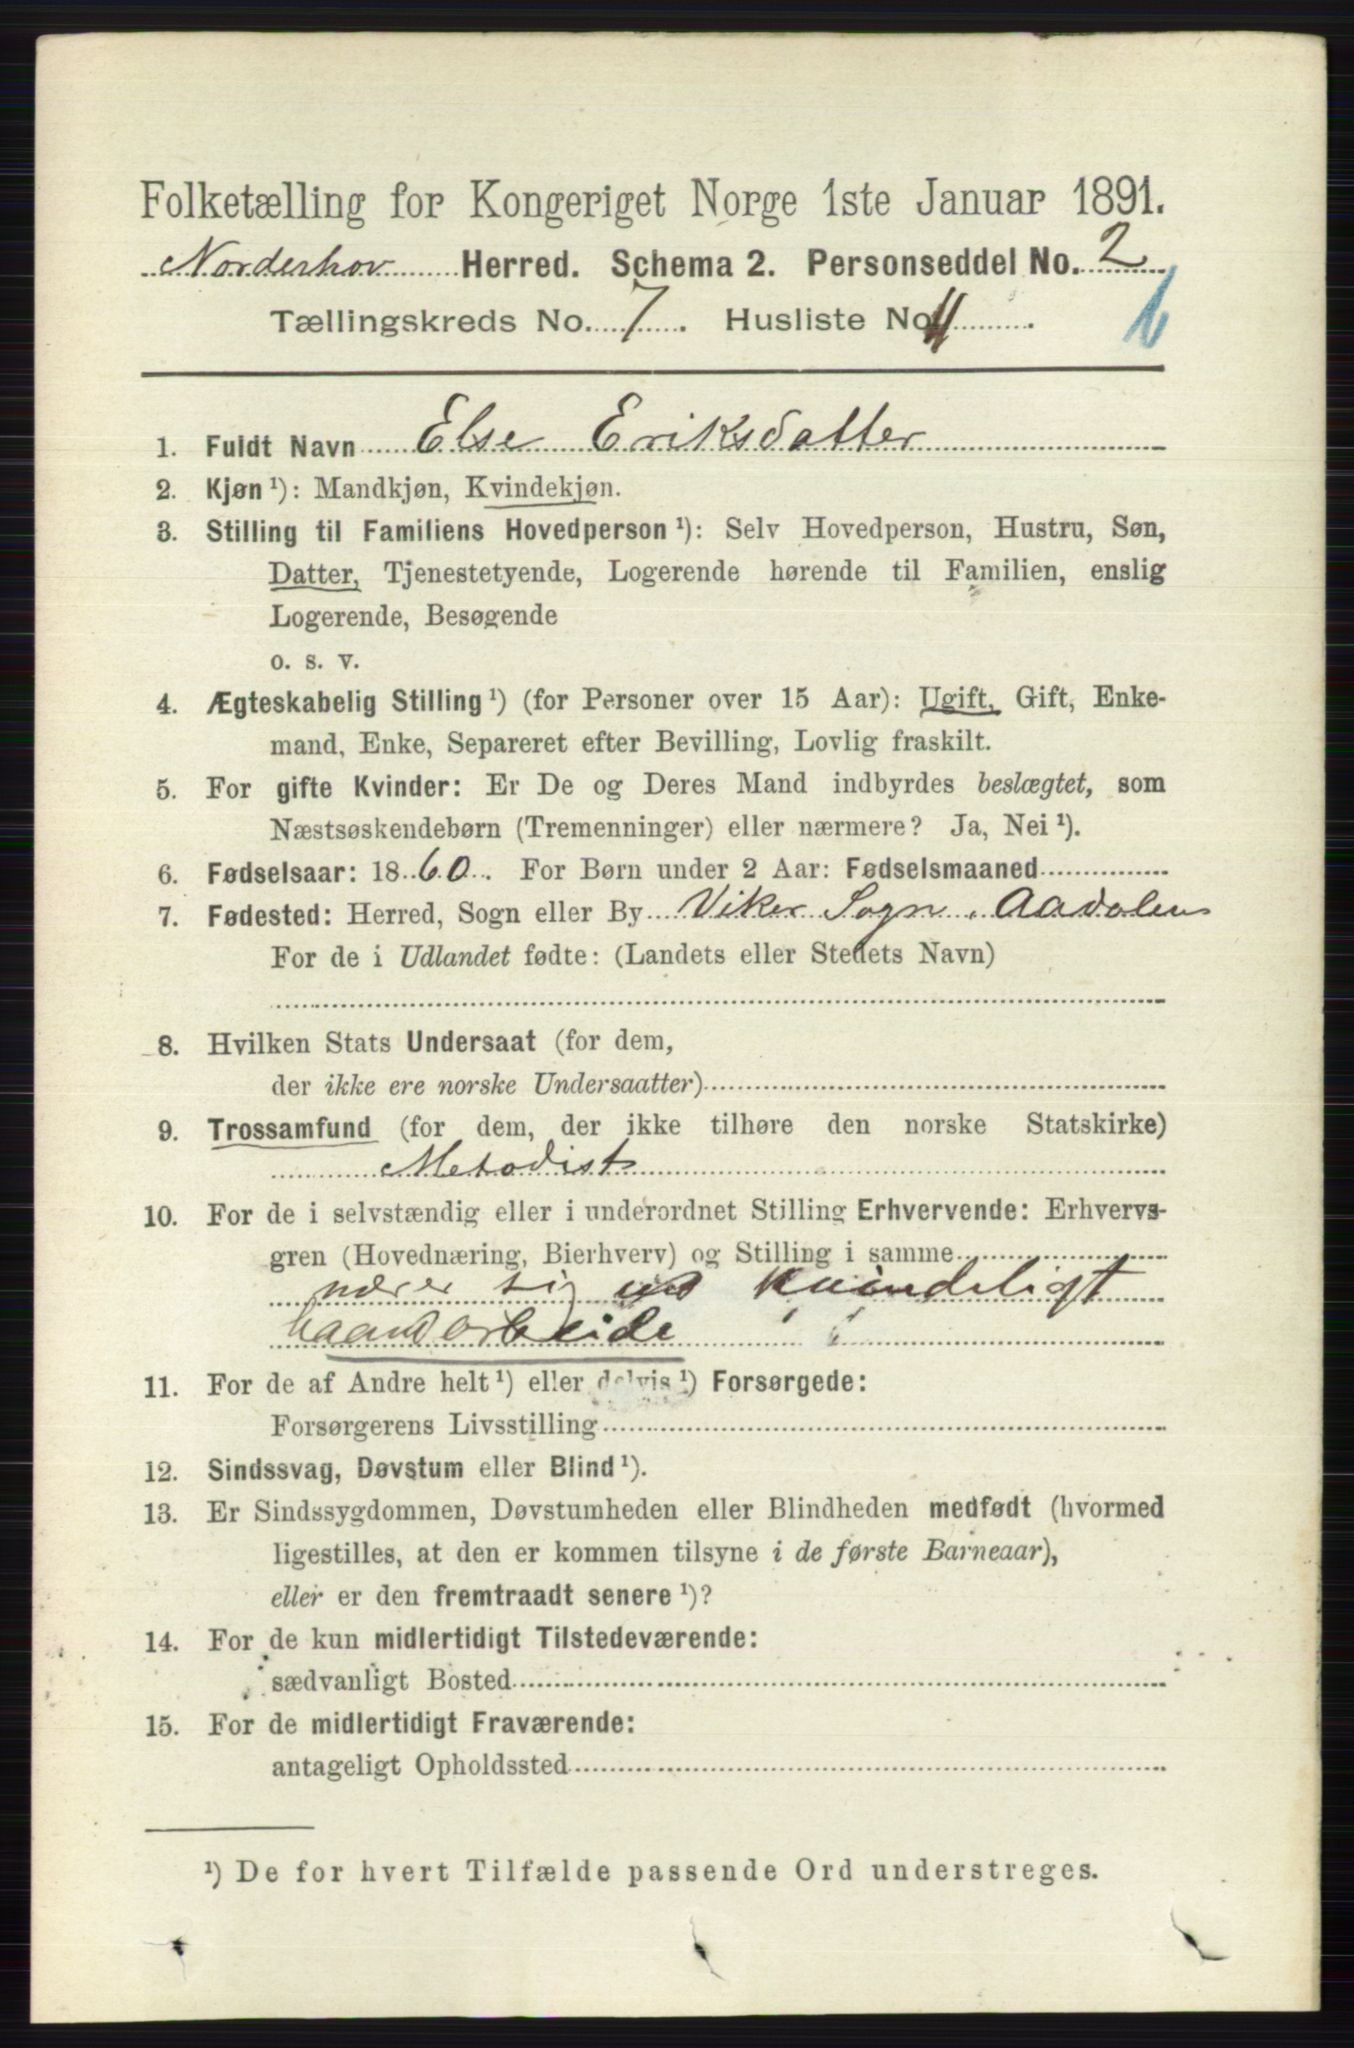 Folketælling for Kongeriget Norge 1ste Januar 1891.
Norderhov Herred. Schema 2. Personseddel No. 2
Tællingskreds No. 7. Husliste No. 11. 6
1. Fuldt Navn Else Eriksdatter
2. Kjøn ¹): Mandkjøn, Kvindekjøn.
3. Stilling til Familiens Hovedperson ¹): Selv Hovedperson, Hustru, Søn,
Datter, Tjenestetyende, Logerende hørende til Familien, enslig
Logerende, Besøgende
o. s. v.
4. Ægteskabelig Stilling ¹) (for Personer over 15 Aar): Ugift, Gift, Enke-
mand, Enke, Separeret efter Bevilling, Lovlig fraskilt.
5. For gifte Kvinder: Er De og Deres Mand indbyrdes beslægtet, som
Næstsøskendebørn (Tremenninger) eller nærmere? Ja, Nei ¹).
6. Fødselsaar: 1860. For Børn under 2 Aar: Fødselsmaaned
7. Fødested: Herred, Sogn eller By Viker Sogn, Aadalen
For de i Udlandet fødte: (Landets eller Stedets Navn)
8. Hvilken Stats Undersaat (for dem,
der ikke ere norske Undersaatter)
9. Trossamfund (for dem, der ikke tilhøre den norske Statskirke)
Metodist
10. For de i selvstændig eller i underordnet Stilling Erhvervende: Erhvervs-
gren (Hovednæring, Bierhverv) og Stilling i samme
nærer sig ved kvindeligt
haandarbeide
11. For de af Andre helt ¹) eller delvis ¹) Forsørgede:
Forsørgerens Livsstilling
12. Sindssvag, Døvstum eller Blind ¹).
13. Er Sindssygdommen, Døvstumheden eller Blindheden medfødt (hvormed
ligestilles, at den er kommen tilsyne i de første Barneaar),
eller er den fremtraadt senere ¹)?
14. For de kun midlertidigt Tilstedeværende:
sædvanligt Bosted
15. For de midlertidigt Fraværende:
antageligt Opholdssted
¹) De for hvert Tilfælde passende Ord understreges.